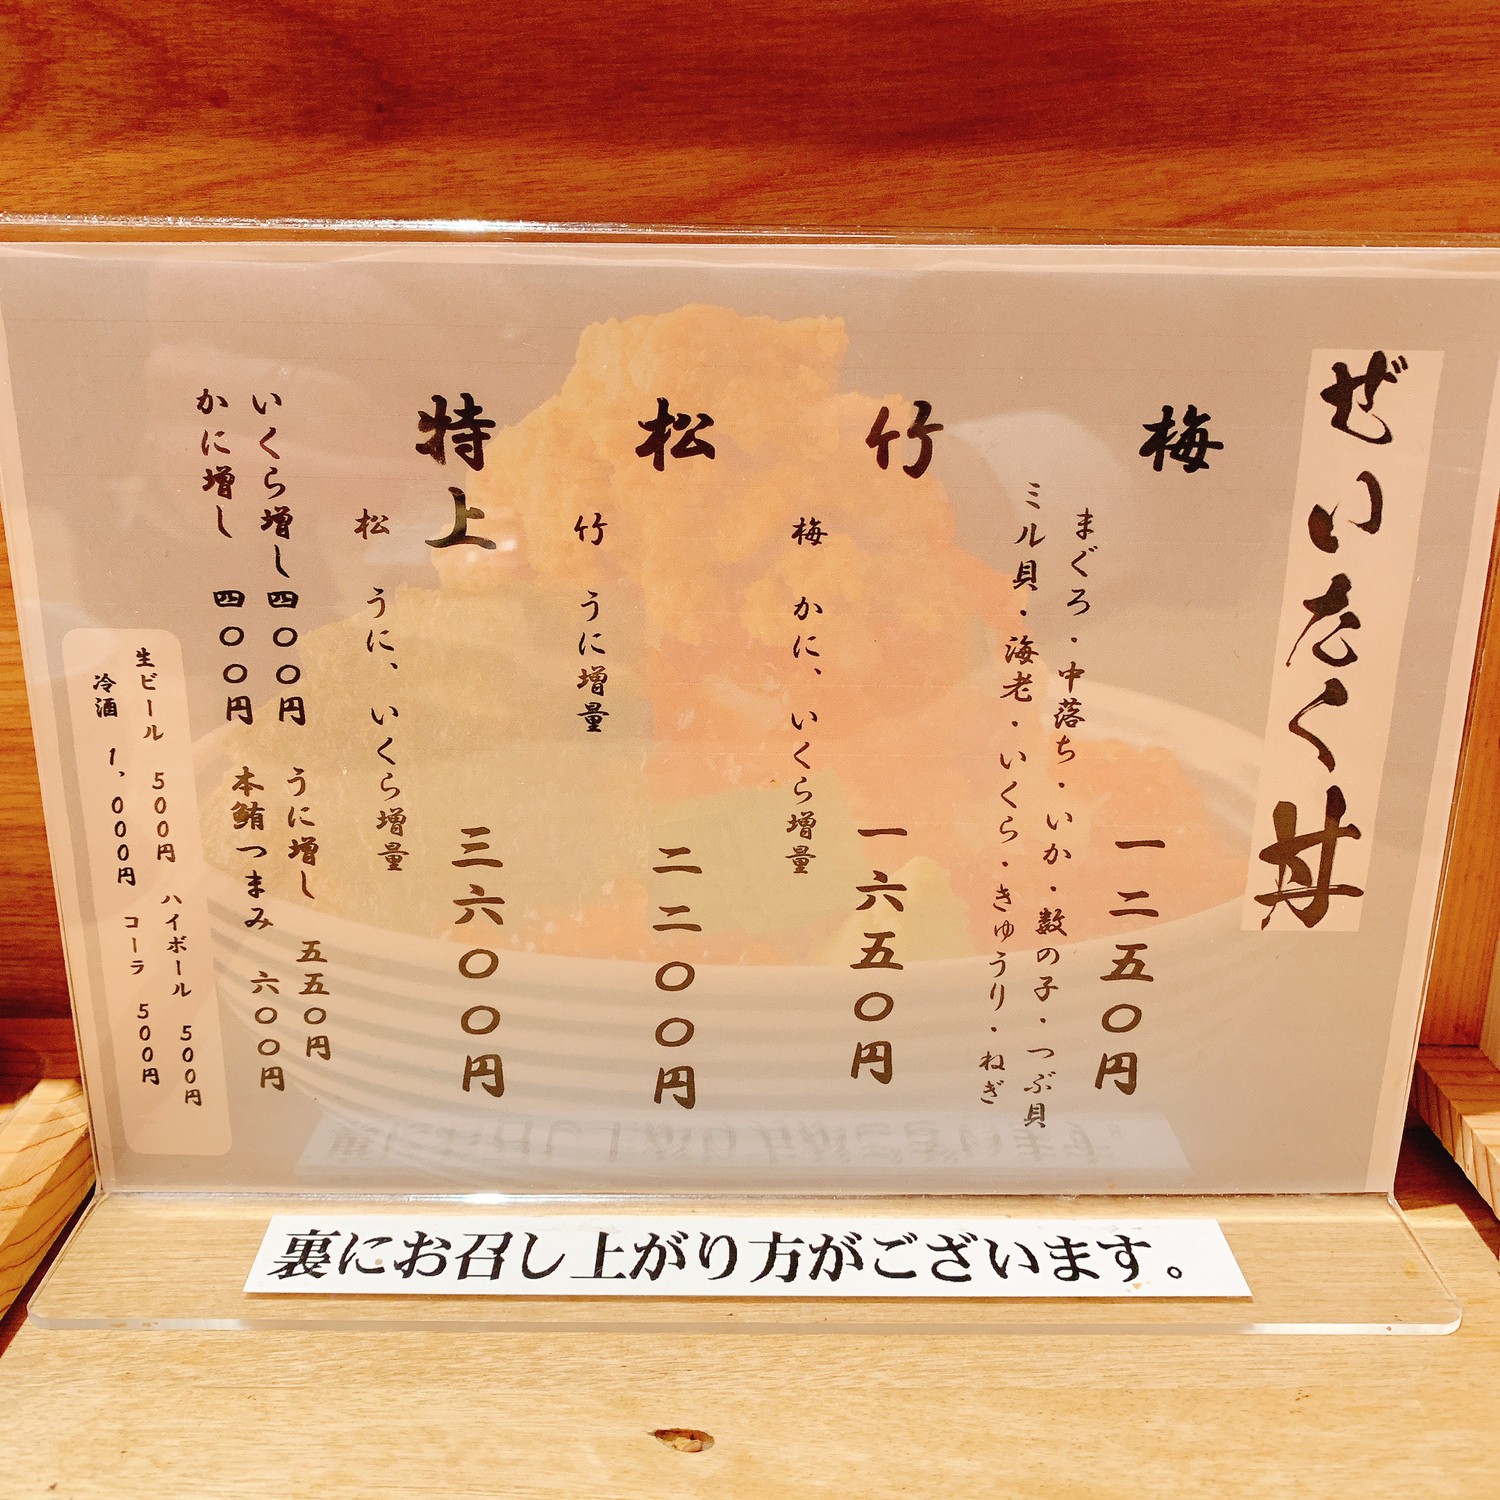 ぜいたく丼
梅 一二五〇円
まぐろ・中落ち・いか・数の子・つぶ貝
ミル貝・海老・いくら・きゅうり・ねぎ
竹 一六五〇円
梅 かに、いくら増量
松 二二〇〇円
竹 うに増量
特上 三六〇〇円
松 うに、いくら増量
いくら増し 四〇〇円 うに増し 五五〇円
かに増し 四〇〇円 本鮪つまみ 六〇〇円
生ビール 500円 ハイボール 500円
冷酒 1,000円 コーラ 500円
裏にお召し上がり方がございます。